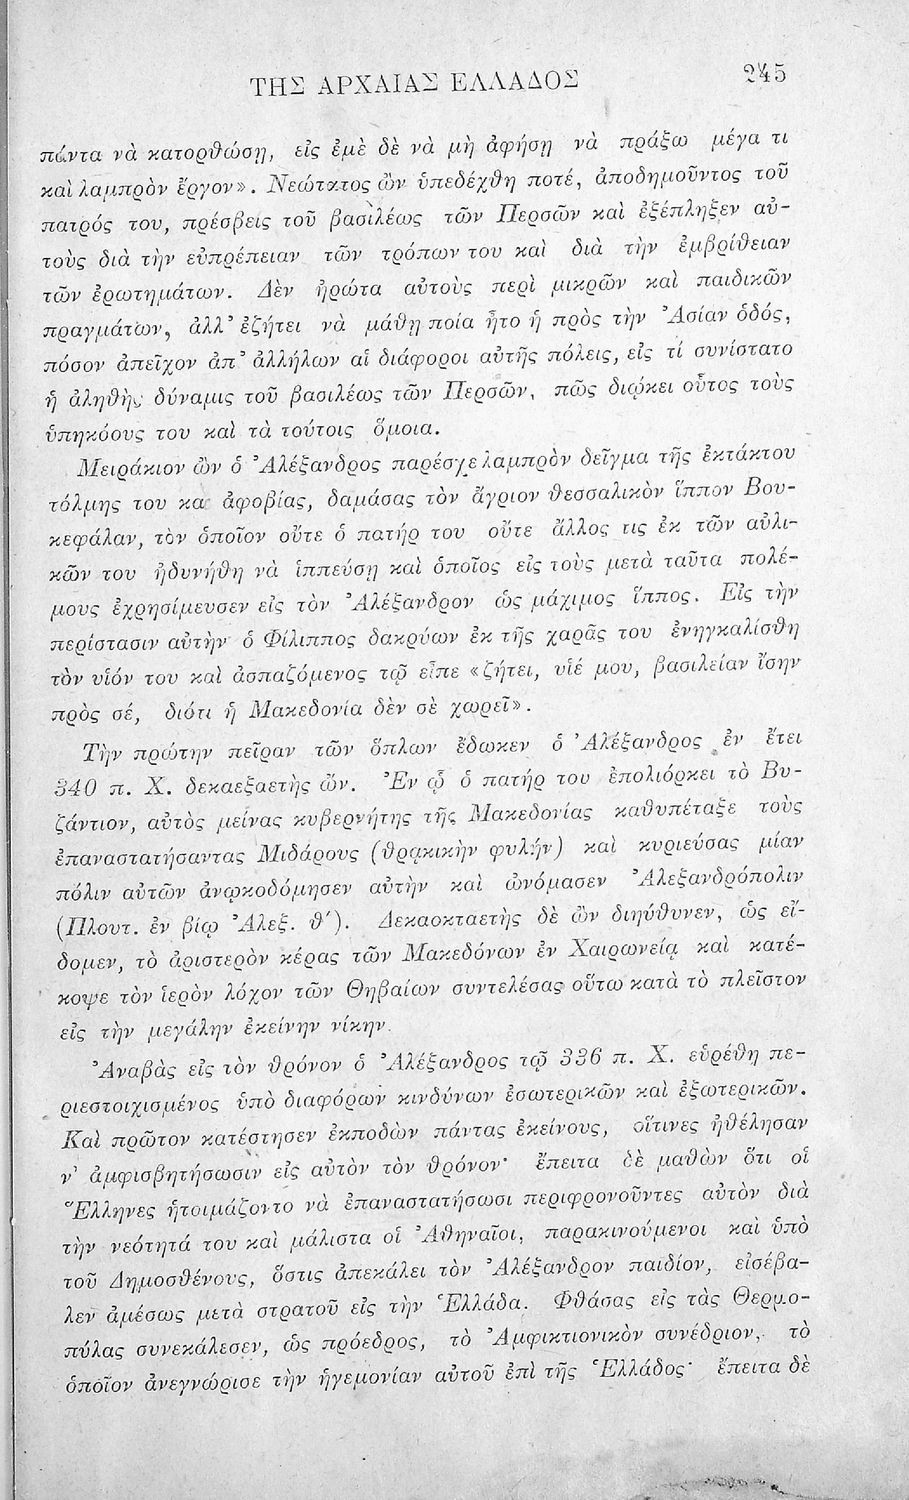 ΤΗΣ ΑΡΧΑΙΑΣ ΕΛΛΑΔΟΣ 245
πάντα νὰ κατορθώσῃ, εἰς ἐμὲ δὲ νὰ μὴ ἀφήσῃ νὰ πράξω μέγα τι
καὶ λαμπρὸν ἔργον». Νεώτατος ὢν ὑπεδέχθη ποτέ, ἀποδημοῦντος τοῦ
πατρός του, πρέσβεις τοῦ βασιλέως τῶν Περσῶν καὶ ἐξέπληξεν αὐ-
τοὺς διὰ τὴν εὐπρέπειαν τῶν τρόπων του καὶ διὰ τὴν ἐμβρίθειαν
τῶν ἐρωτημάτων. Δὲν ἠρώτα αὐτοὺς περὶ μικρῶν καὶ παιδικῶν
πραγμάτων, ἀλλ' ἐζήτει νὰ μάθῃ ποία ἦτο ἡ πρὸς τὴν Ἀσίαν ὁδός,
πόσον ἀπεῖχον ἀπ' ἀλλήλων αἱ διάφοροι αὐτῆς πόλεις, εἰς τί συνίστατο
ἡ ἀληθὴς δύναμις τοῦ βασιλέως τῶν Περσῶν, πῶς διῴκει οὗτος τοὺς
ὑπηκόους του καὶ τὰ τούτοις ὅμοια.
Μειράκιον ὢν ὁ Ἀλέξανδρος παρέσχε λαμπρὸν δεῖγμα τῆς ἐκτάκτου
τόλμης του καὶ ἀφοβίας, δαμάσας τὸν ἄγριον θεσσαλικὸν ἵππον Βου-
κεφάλαν, τὸν ὁποῖον οὔτε ὁ πατήρ του οὔτε ἄλλος τις ἐκ τῶν αὐλι-
κῶν του ἠδυνήθη νὰ ἱππεύσῃ καὶ ὁποῖος εἰς τοὺς μετὰ ταῦτα πολέ-
μους ἐχρησίμευσεν εἰς τὸν Ἀλέξανδρον ὡς μάχιμος ἵππος. Εἰς τὴν
περίστασιν αὐτὴν ὁ Φίλιππος δακρύων ἐκ τῆς χαρᾶς του ἐνηγκαλίσθη
τὸν υἱόν του καὶ ἀσπαζόμενος τῷ εἶπε «ζήτει, υἱέ μου, βασιλείαν ἴσην
πρὸς σέ, διότι ἡ Μακεδονία δὲν σὲ χωρεῖ».
Τὴν πρώτην πεῖραν τῶν ὅπλων ἔδωκεν ὁ Ἀλέξανδρος ἐν ἔτει
340 π. Χ. δεκαεξαετὴς ὤν. Ἐν ᾧ ὁ πατήρ του ἐπολιόρκει τὸ Βυ-
ζάντιον, αὐτὸς μείνας κυβερνήτης τῆς Μακεδονίας καθυπέταξε τοὺς
ἐπαναστατήσαντας Μιδάρους (θρᾳκικὴν φυλήν) καὶ κυριεύσας μίαν
πόλιν αὐτῶν ἀνῳκοδόμησεν αὐτὴν καὶ ὠνόμασεν Ἀλεξανδρόπολιν
(Πλουτ. ἐν βίῳ Ἀλεξ. θ'). Δεκαοκταετὴς δὲ ὢν διηύθυνεν, ὡς εἴ-
δομεν, τὸ ἀριστερὸν κέρας τῶν Μακεδόνων ἐν Χαιρωνείᾳ καὶ κατέ-
κοψε τὸν ἱερὸν λόχον τῶν Θηβαίων συντελέσας οὕτω κατὰ τὸ πλεῖστον
εἰς τὴν μεγάλην ἐκείνην νίκην.
Ἀναβὰς εἰς τὸν θρόνον ὁ Ἀλέξανδρος τῷ 336 π. Χ. εὑρέθη πε-
ριεστοιχισμένος ὑπὸ διαφόρων κινδύνων ἐσωτερικῶν καὶ ἐξωτερικῶν.
Καὶ πρῶτον κατέστησεν ἐκποδὼν πάντας ἐκείνους, οἵτινες ἠθέλησαν
ν' ἀμφισβητήσωσιν εἰς αὐτὸν τὸν θρόνον· ἔπειτα δὲ μαθὼν ὅτι οἱ
Ἕλληνες ἡτοιμάζοντο νὰ ἐπαναστατήσωσι περιφρονοῦντες αὐτὸν διὰ
τὴν νεότητά του καὶ μάλιστα οἱ Ἀθηναῖοι, παρακινούμενοι καὶ ὑπὸ
τοῦ Δημοσθένους, ὅστις ἀπεκάλει τὸν Ἀλέξανδρον παιδίον, εἰσέβα-
λεν ἀμέσως μετὰ στρατοῦ εἰς τὴν Ἑλλάδα. Φθάσας εἰς τὰς Θερμο-
πύλας συνεκάλεσεν, ὡς πρόεδρος, τὸ Ἀμφικτιονικὸν συνέδριον, τὸ
ὁποῖον ἀνεγνώρισε τὴν ἡγεμονίαν αὐτοῦ ἐπὶ τῆς Ἑλλάδος· ἔπειτα δὲ